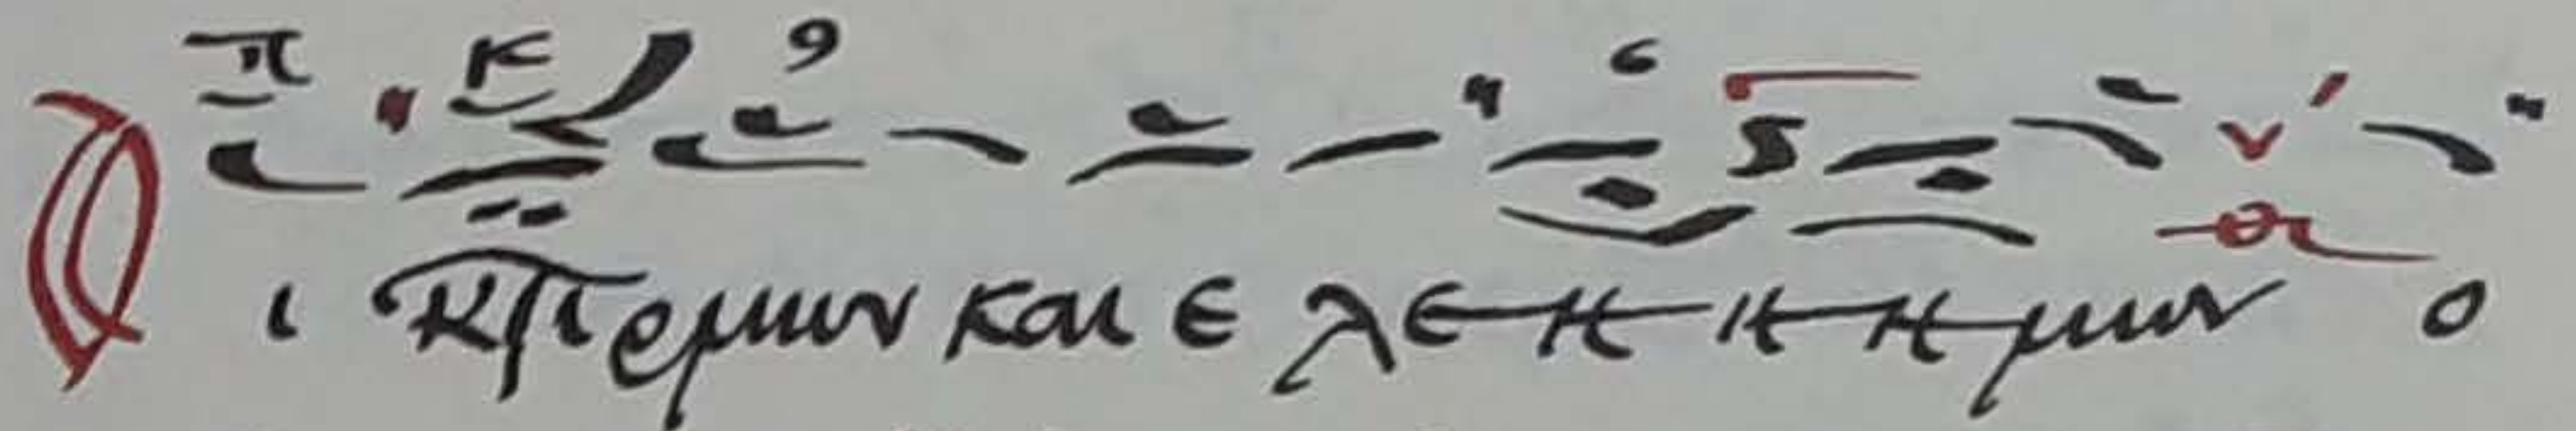 Ο ι κτιρμων και ε λε η η η μων ο